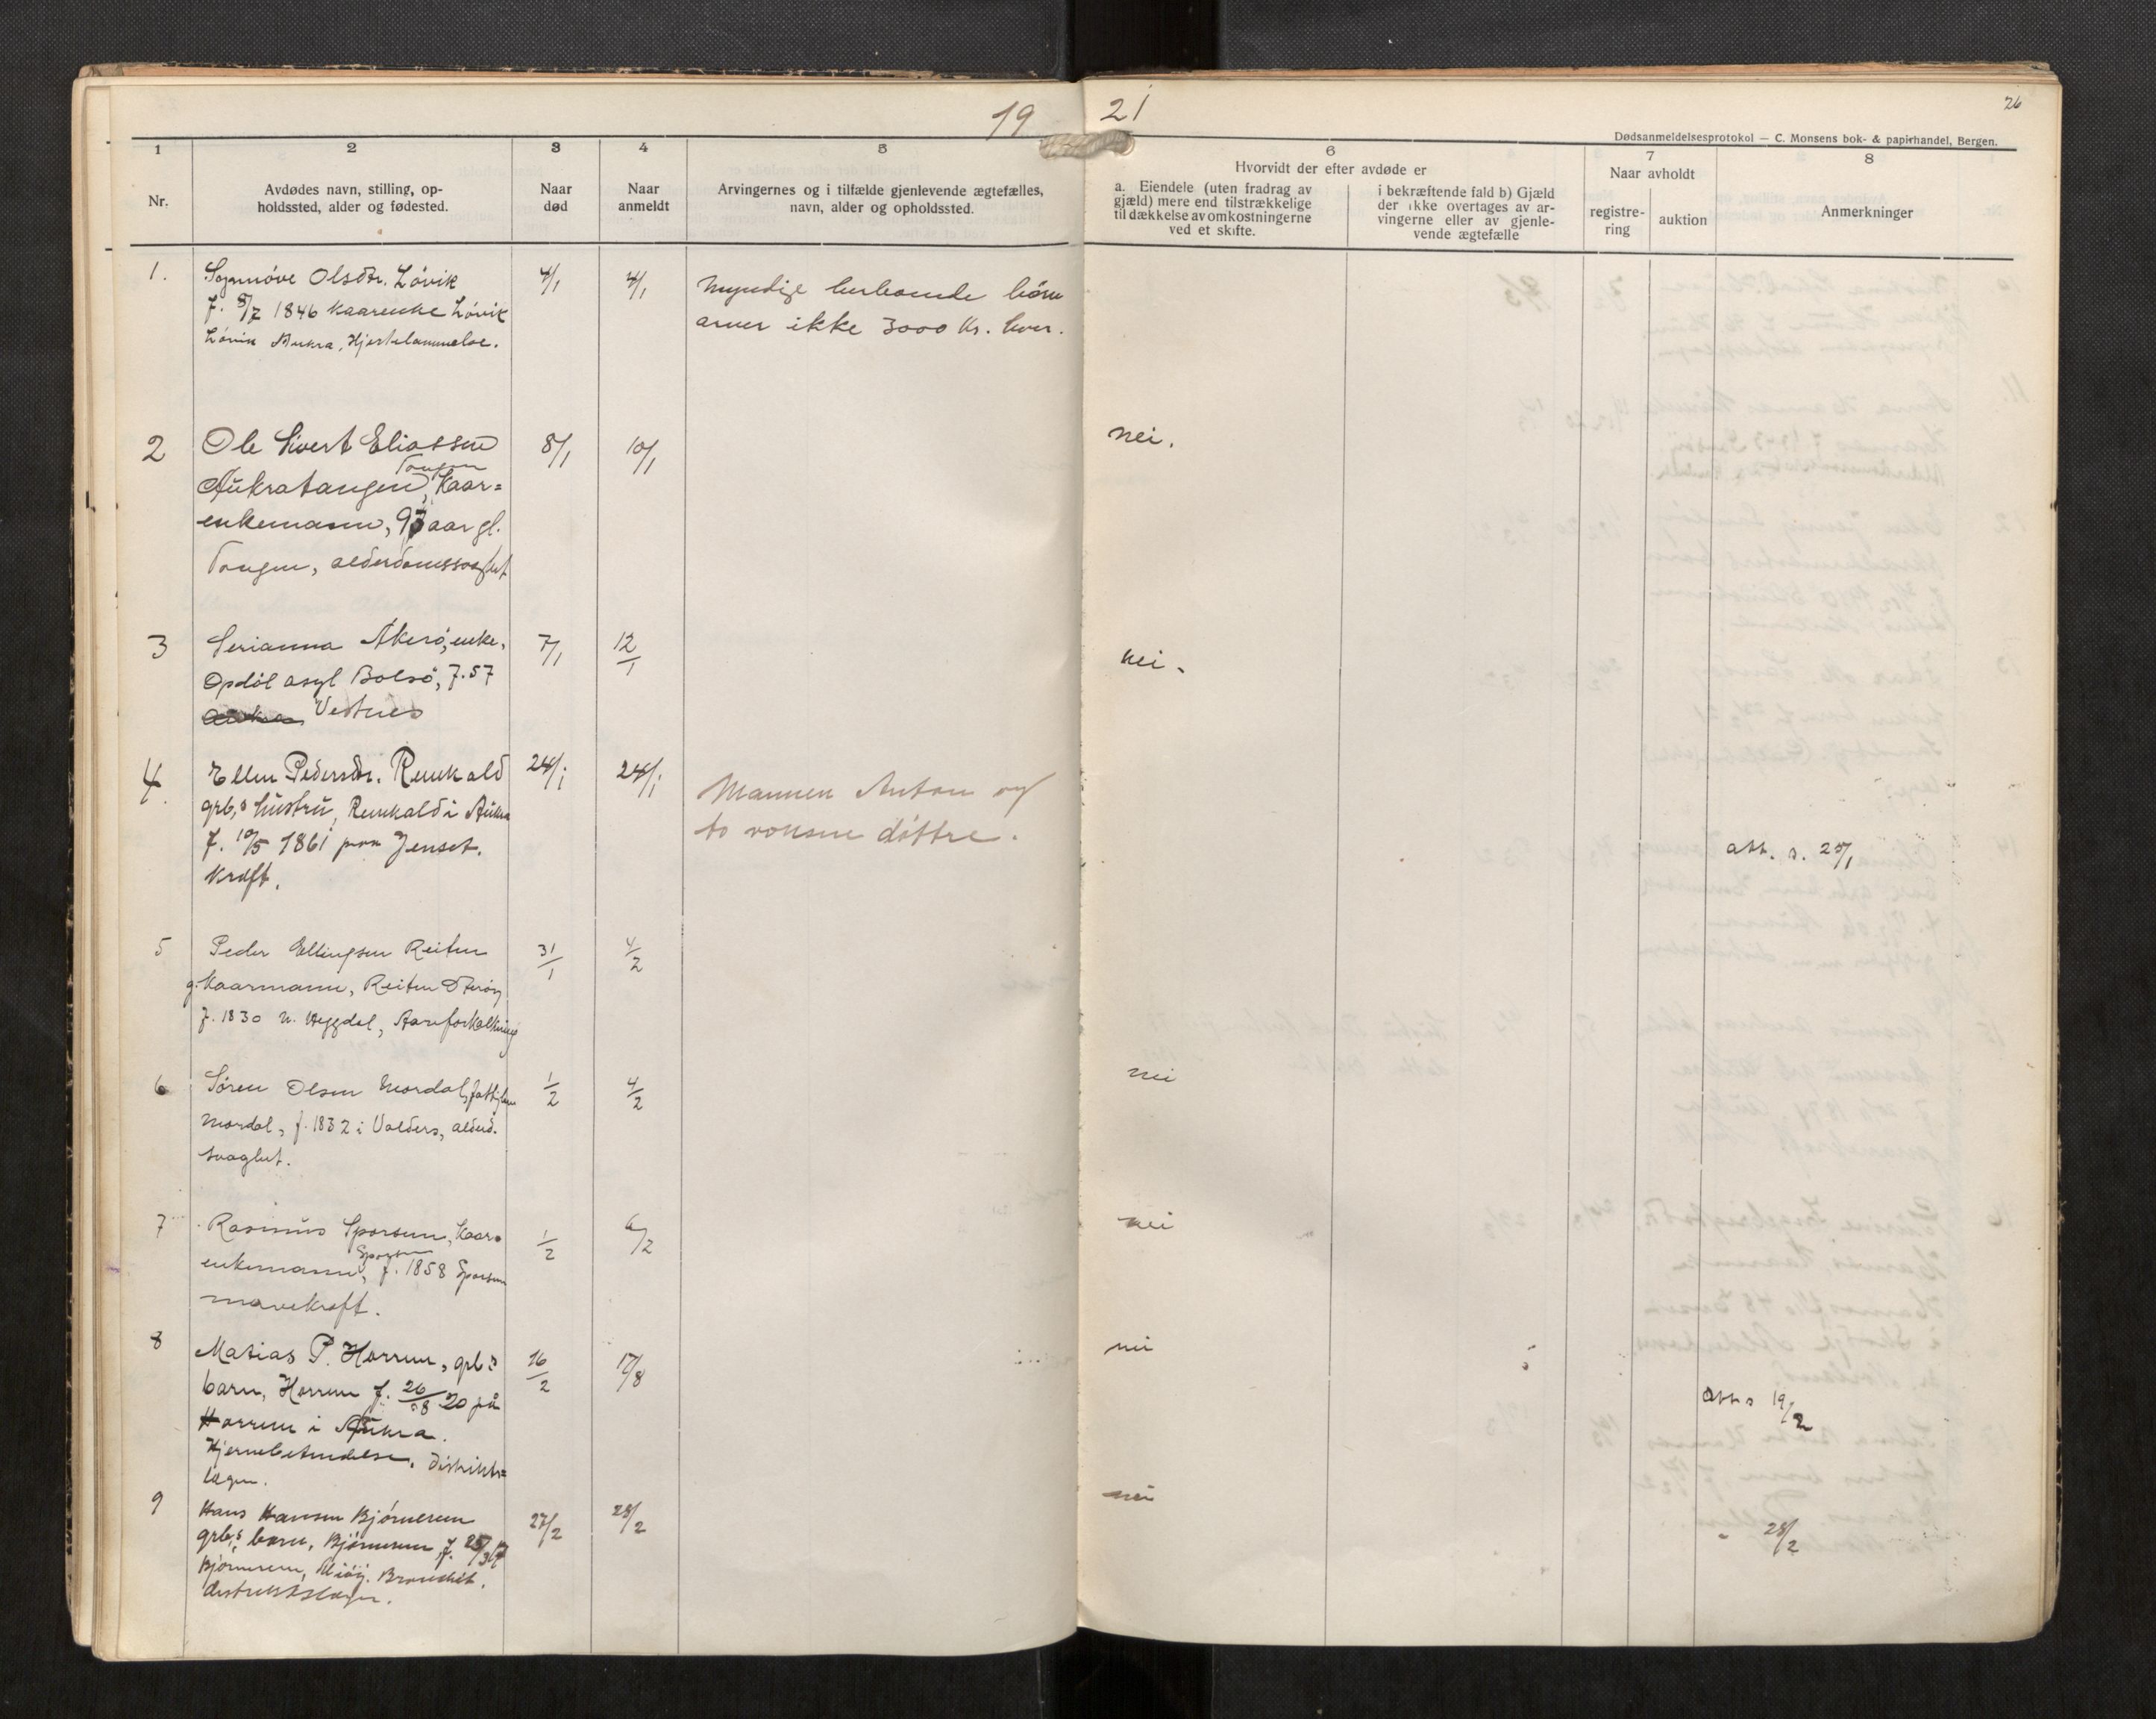 19 21
26
Dødsanmeldelsesprotokol — C. Monsens bok- & papirhandel, Bergen.
1 2 3 4 5 6 7 8
Nr.
Avdødes navn, stilling, op-
holdssted, alder og fødested.
Naar
død
Naar
anmeldt
Arvingernes og i tilfælde gjenlevende ægtefælles,
navn, alder og opholdssted.
Hvorvidt der efter avdøde er
a. Eiendele (uten fradrag av
gjæld) mere end tilstrækkelige
til dækkelse av omkostningerne
ved et skifte.
i bekræftende fald b) Gjæld
der ikke overtages av ar-
vingerne eller av gjenle-
vende ægtefælle
Naar avholdt
registre-
ring
auktion
Anmerkninger
1. Olsdtr. Lövik 4/1 4/1 Myndige herboende börn
f. 8/7 1846 kaarenke Lövik arver ikke 3000 Kr. hver.
Lövik Aukra, Hjertelammelse.
2 Ole Sivert Eliassen 8/1 10/1 nei.
Tangen
Aukratangen, Kaar=
enkemann, 93 aar gl.
Tangen, alderdomssvaghet
3 Serianna Akerö, enke, 7/1 12/1 nei.
Opdöl asyl Bolsö, f. 57
Aukra Vestnes
4. Ellen Pedersdtr. Remkald 24/1 24/1 Mannen Anton og
grb,s hustru, Remkald i Aukra to voksne döttre.
f. 10/5 1861 paa Jenset. att. s. 25/1
Kræft.
5 Peder Ellingsen Reiten 31/1 4/2
g. Kaarmann, Reiten
f. 1830 Heggdal, Aareforkalkning
6 Sören Olsen Mordal, 1/2 4/2 nei
Mordal, f. 1832 i Valders, alderd.
svaghet.
7 Rasmus Sporsem, Kaar= 1/2 6/2 nei
Sporsem
enkemann, f. 1858 Sporsem
mavekræft.
8 Matias P. Horrem, grb.s 16/2 17/8 nei
barn, Horrem f. 26/8 20 på att. s 19/2
Horrem i Aukra.
Hjernebetendelse. Distrikts=
lægen.
9 Hans Hansen Björnerem 27/2 28/2 nei
grb,s barn, Björnerem f. 25/3 17 " 28/2
Björnerem, Miöy. Bronchit.
distriktslægen.